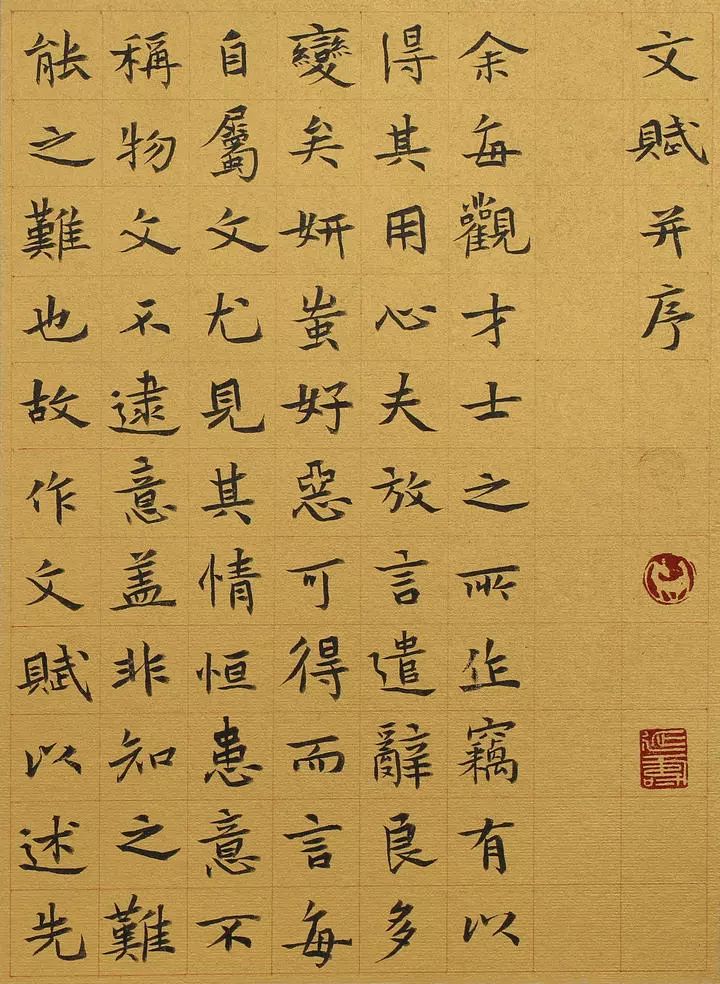 文賦并序
余每觀才士之所作竊有以
得其用心夫放言遣辭良多
變矣妍蚩好惡可得而言每
自屬文尤見其情恒患意不
稱物文不逮意蓋非知之難
能之難也故作文賦以述先